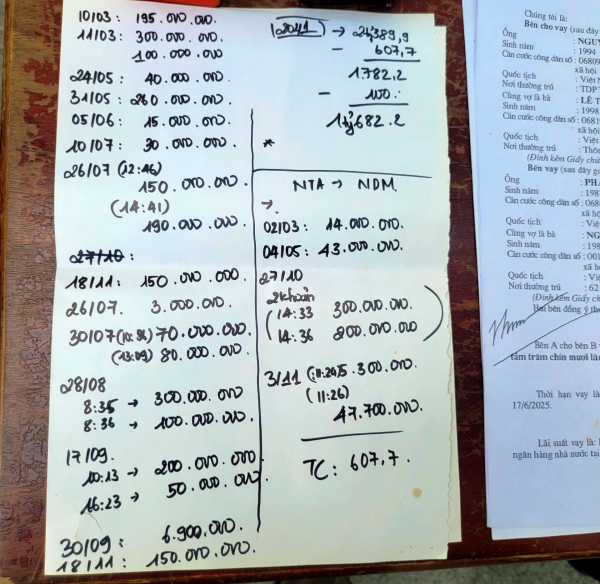 10/03: 195.000.000.
11/03: 300.000.000.
100.000.000
24/05: 40.000.000.
31/05: 260.000.000.
05/06: 15.000.000.
10/07: 30.000.000.
26/07 (12:46)
150.000.000.
(14:41)
190.000.000.
27/10:
18/11: 150.000.000.
26/07. 3.000.000.
30/07 70.000.000.
(13:09) 80.000.000.
28/08
8:35 → 300.000.000
8:36 → 100.000.000.
17/09.
10:13 → 200.000.000.
16:23 → 50.000.000.
30/09: 6.900.000.
18/11: 150.000.000.
→ 24,389,9
- 607,7
1782.2
- 100.
1tỷ682.2
*
NTA → NDM.
→.
02/03: 14.000.000.
04/05: 43.000.000.
27/10
2 khoản
14:33 300.000.000.
14:36 200.000.000
3/11 300.000.000.
(11:26)
47.700.000.
TC: 607,7.
Chúng tôi là:
Bên cho vay (sau đây
Ông : NGUY
Sinh năm : 1994
Căn cước công dân số : 06809
xã hội
Quốc tịch : Việt N
Nơi thường trú : TDP
Cùng vợ là bà : LÊ T
Sinh năm : 1998
Căn cước công dân số : 0681
xã hội
Quốc tịch : Việt
Nơi thường trú : Thôn
(Đính kèm Giấy chứ
Bên vay (sau đây gọ
Ông : PHA
Sinh năm : 198
Căn cước công dân số : 068
xã h
Quốc tịch : Việ
Cùng vợ là bà : NG
Sinh năm : 198
Căn cước công dân số : 001
xã h
Quốc tịch : Việ
Nơi thường trú : 62
(Đính kèm Giấy ch
Hai bên đồng ý th
Bên A cho bên B
tám trăm chín mươi lăm
Thời hạn vay là
17/6/2025.
Lãi suất vay là:
ngân hàng nhà nước tại